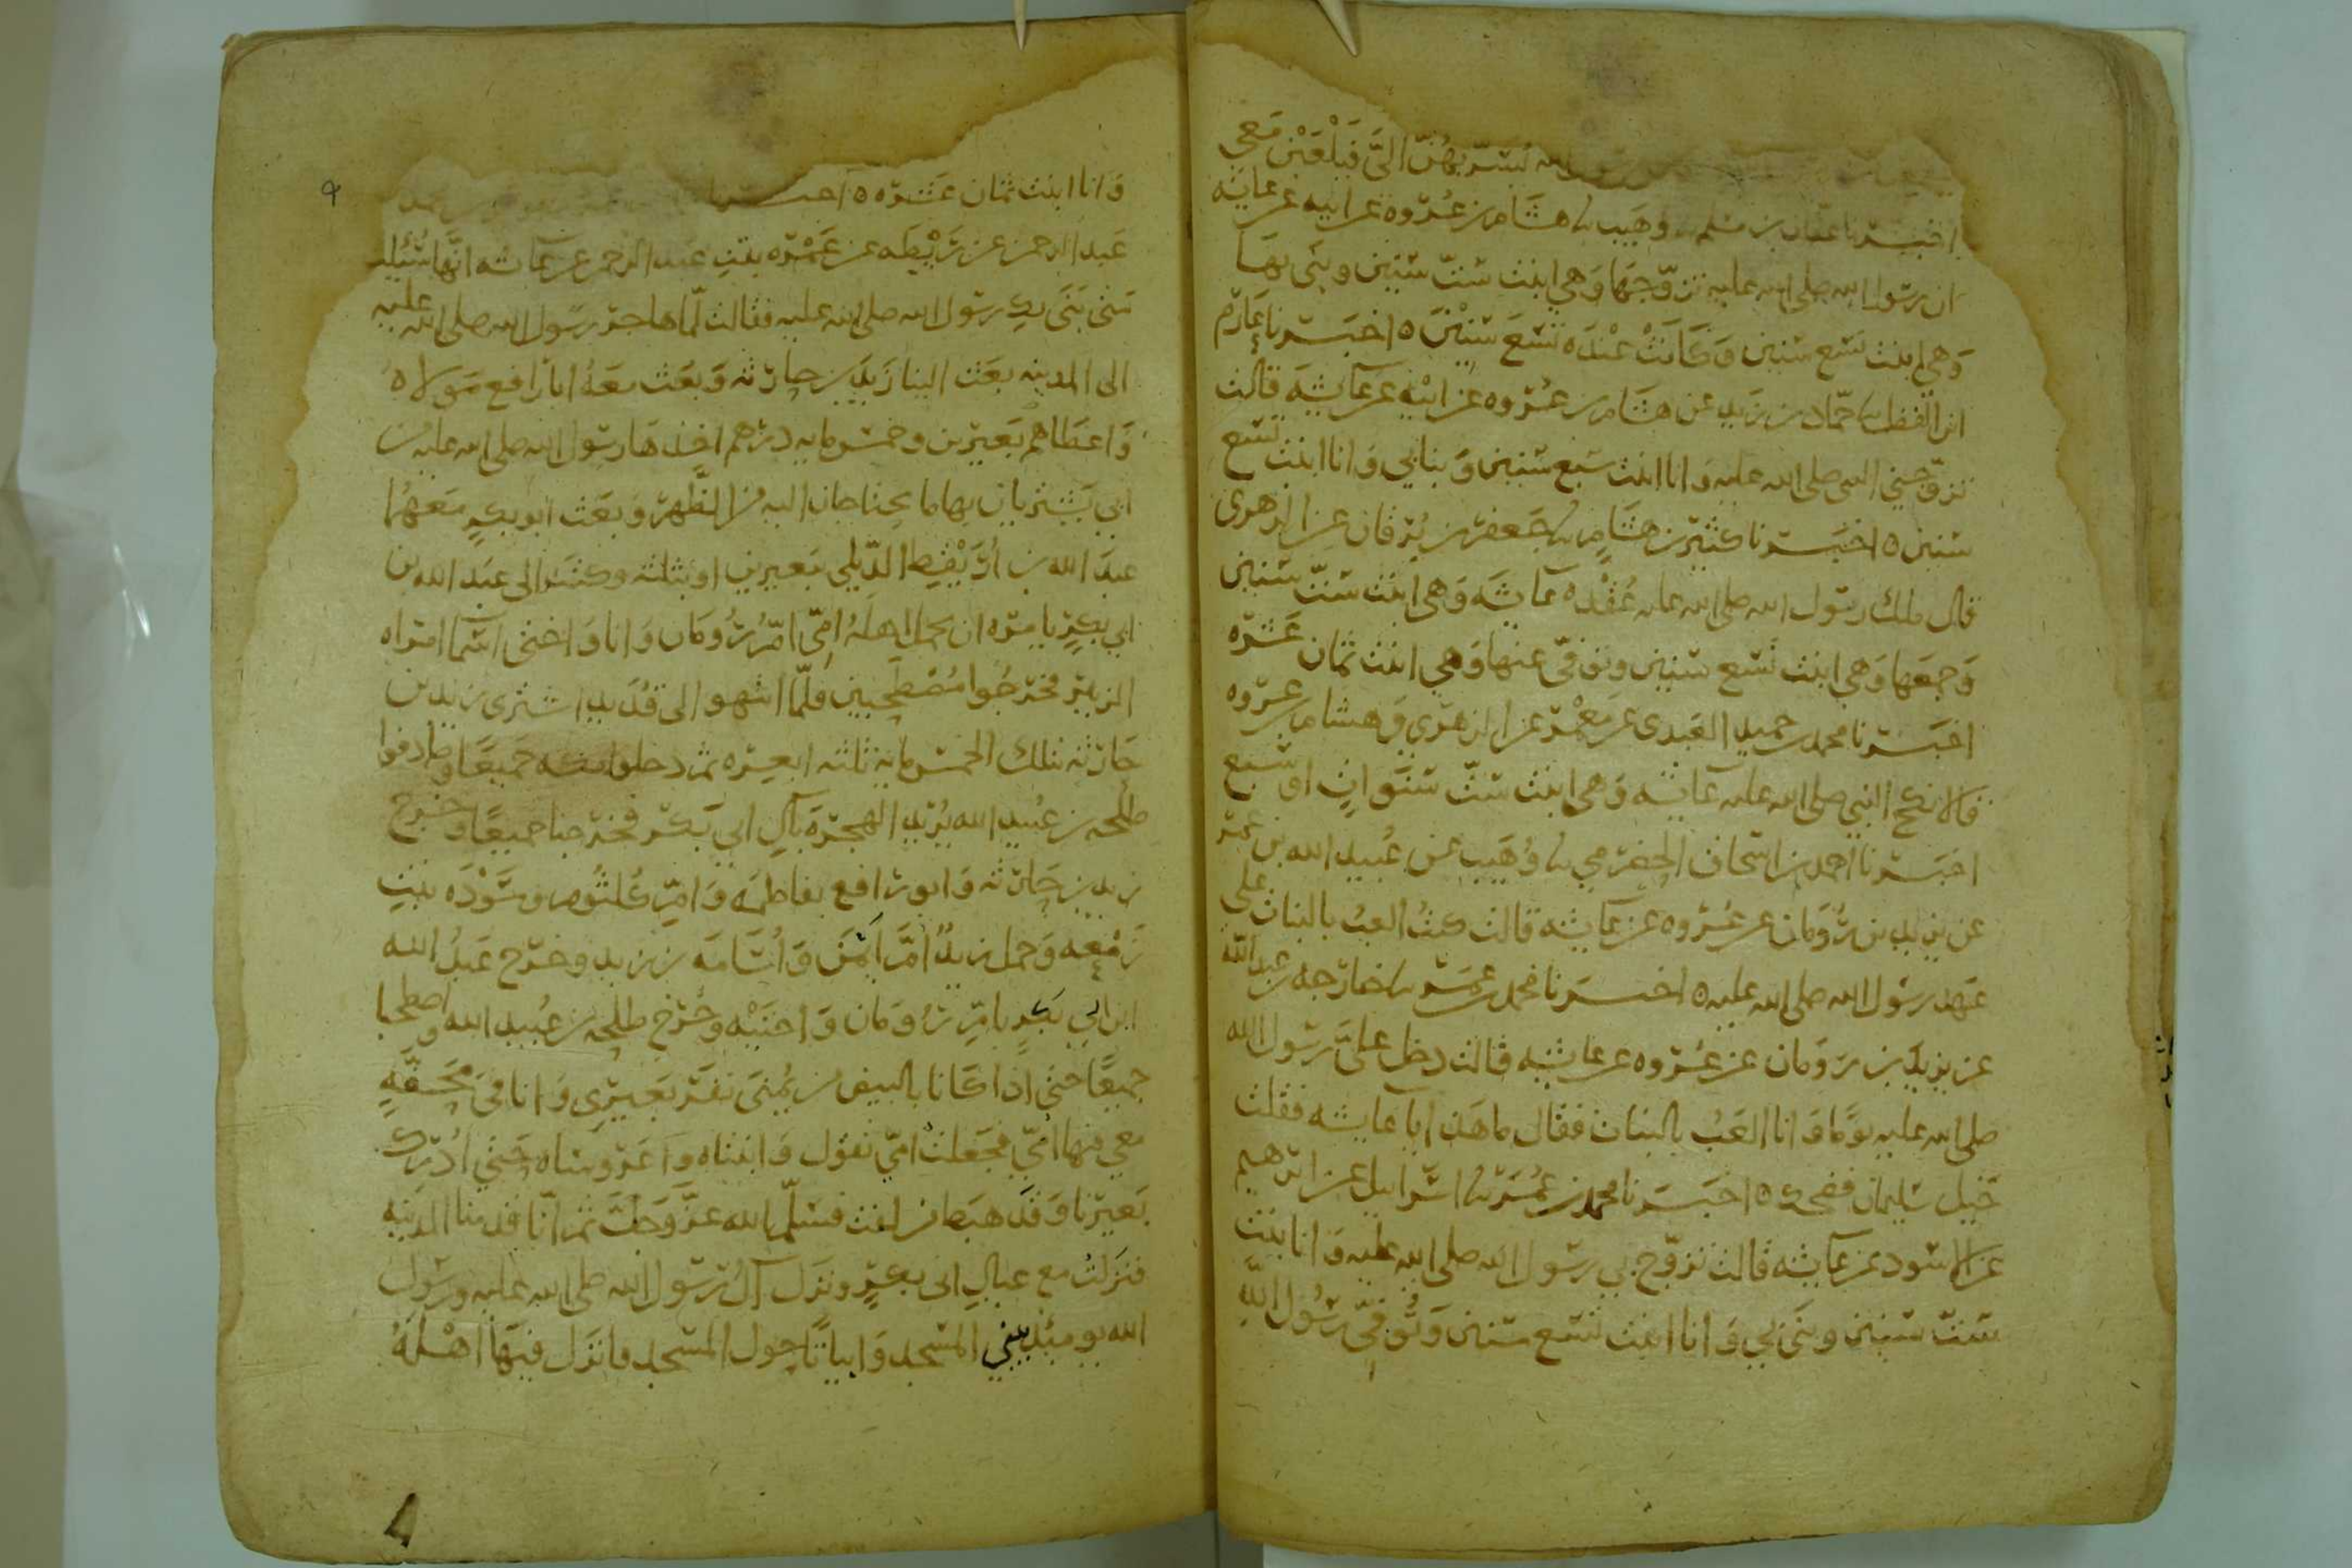 يسر بهن الي فيلعبن معي
اخبرنا عفان بن مسلم نا وهيب نا هشام بن عروه عن ابيه عن عايشه
ان رسول الله صلى الله عليه تزوجها وهي ابنت ست سنين وبنى بها
وهي ابنت تسع سنين وكانت عنده تسع سنين ه اخبرنا عارم
ابن الفضل نا حماد بن زيد عن هشام بن عروه عن ابيه عن عايشه قالت
تزوجني النبي صلى الله عليه وانا ابنت سبع سنين وبنا بي وانا ابنت تسع
سنين ه اخبرنا كثير بن هشام نا جعفر بن برقان عن الزهري
قال ملك رسول الله صلى الله عليه عقده عايشه وهي ابنت ست سنين
وجمعها وهي ابنت تسع سنين وتوفي عنها وهي ابنت ثمان عشره
اخبرنا محمد بن حميد العبدي عن معمر عن الزهري وهشام بن عروه
قالا نكح النبي صلى الله عليه عايشه وهي ابنت ست سنوات او سبع
اخبرنا احمد بن اسحاق الحضرمي نا وهيب عن عبيد الله بن عمر
عن يزيد بن رومان عن عروه عن عايشه قالت كنت العب بالبنات على
عهد رسول الله صلى الله عليه ه اخبرنا محمد بن عمر نا خارجه بن عبد الله
عن يزيد بن رومان عن عروه عن عايشه قالت دخل علي رسول الله
صلى الله عليه يوما وانا العب بالبنات فقال ما هذا يا عايشه فقلت
خيل سليمان فضحك ه اخبرنا محمد بن عمر نا اسرائيل عن ابرهيم
عن الاسود عن عايشه قالت تزوج بي رسول الله صلى الله عليه وانا بنت
ست سنين وبنى بي وانا ابنت تسع سنين وتوفي رسول الله
٩
وانا ابنت ثمان عشره ه اخبرنا
عبد الرحمن عن ريطه عن عمره بنت عبد الرحمن عن عايشه انها سئلت
متى بنى بك رسول الله صلى الله عليه فقالت لما هاجر رسول الله صلى الله عليه
الى المدينه بعث الينا زيد بن حارثه وبعث معه ابا رافع مولاه
واعطاهم بعيرين وخمس مايه درهم اخذها رسول الله صلى الله عليه من
ابي بكر يشتريان بها ما يحتاجان اليه من الظهر وبعث ابو بكر معهما
عبد الله بن اريقط الديلي ببعيرين او بثلثه وكتب الى عبد الله بن
ابي بكر يامره ان يحمل اهله امي ام رومان وانا واختي اسما امراه
الزبير فخرجوا مصطحبين فلما انتهوا الى قديد اشترى زيد بن
حارثه بتلك الخمس مايه ثلثه ابعره ثم دخلوا مكه جميعا وصادفوا
طلحه بن عبيد الله يريد الهجره بآل ابي بكر فخرجنا جميعا وخرج
زيد بن حارثه وابو رافع بفاطمه وام كلثوم وسوده بنت
زمعه وحمل زيد ام ايمن واسامه بن زيد وخرج عبد الله
ابن ابي بكر بام رومان واختيه وخرج طلحه بن عبيد الله واصطحبا
جميعا حتى اذا كانا بالبيض من يمنى نفر بعيري وانا في محفه
معي فيها امي فجعلت امي تقول وابنتاه واعروساه حتى ادرك
بعيرنا وقد هبط من لفت فسلم الله عز وجل ثم انا قدمنا المدينه
فنزلت مع عيال ابي بكر ونزل آل رسول الله صلى الله عليه ورسول
الله يومئذ يبني المسجد وابياتا حول المسجد فانزل فيها اهله